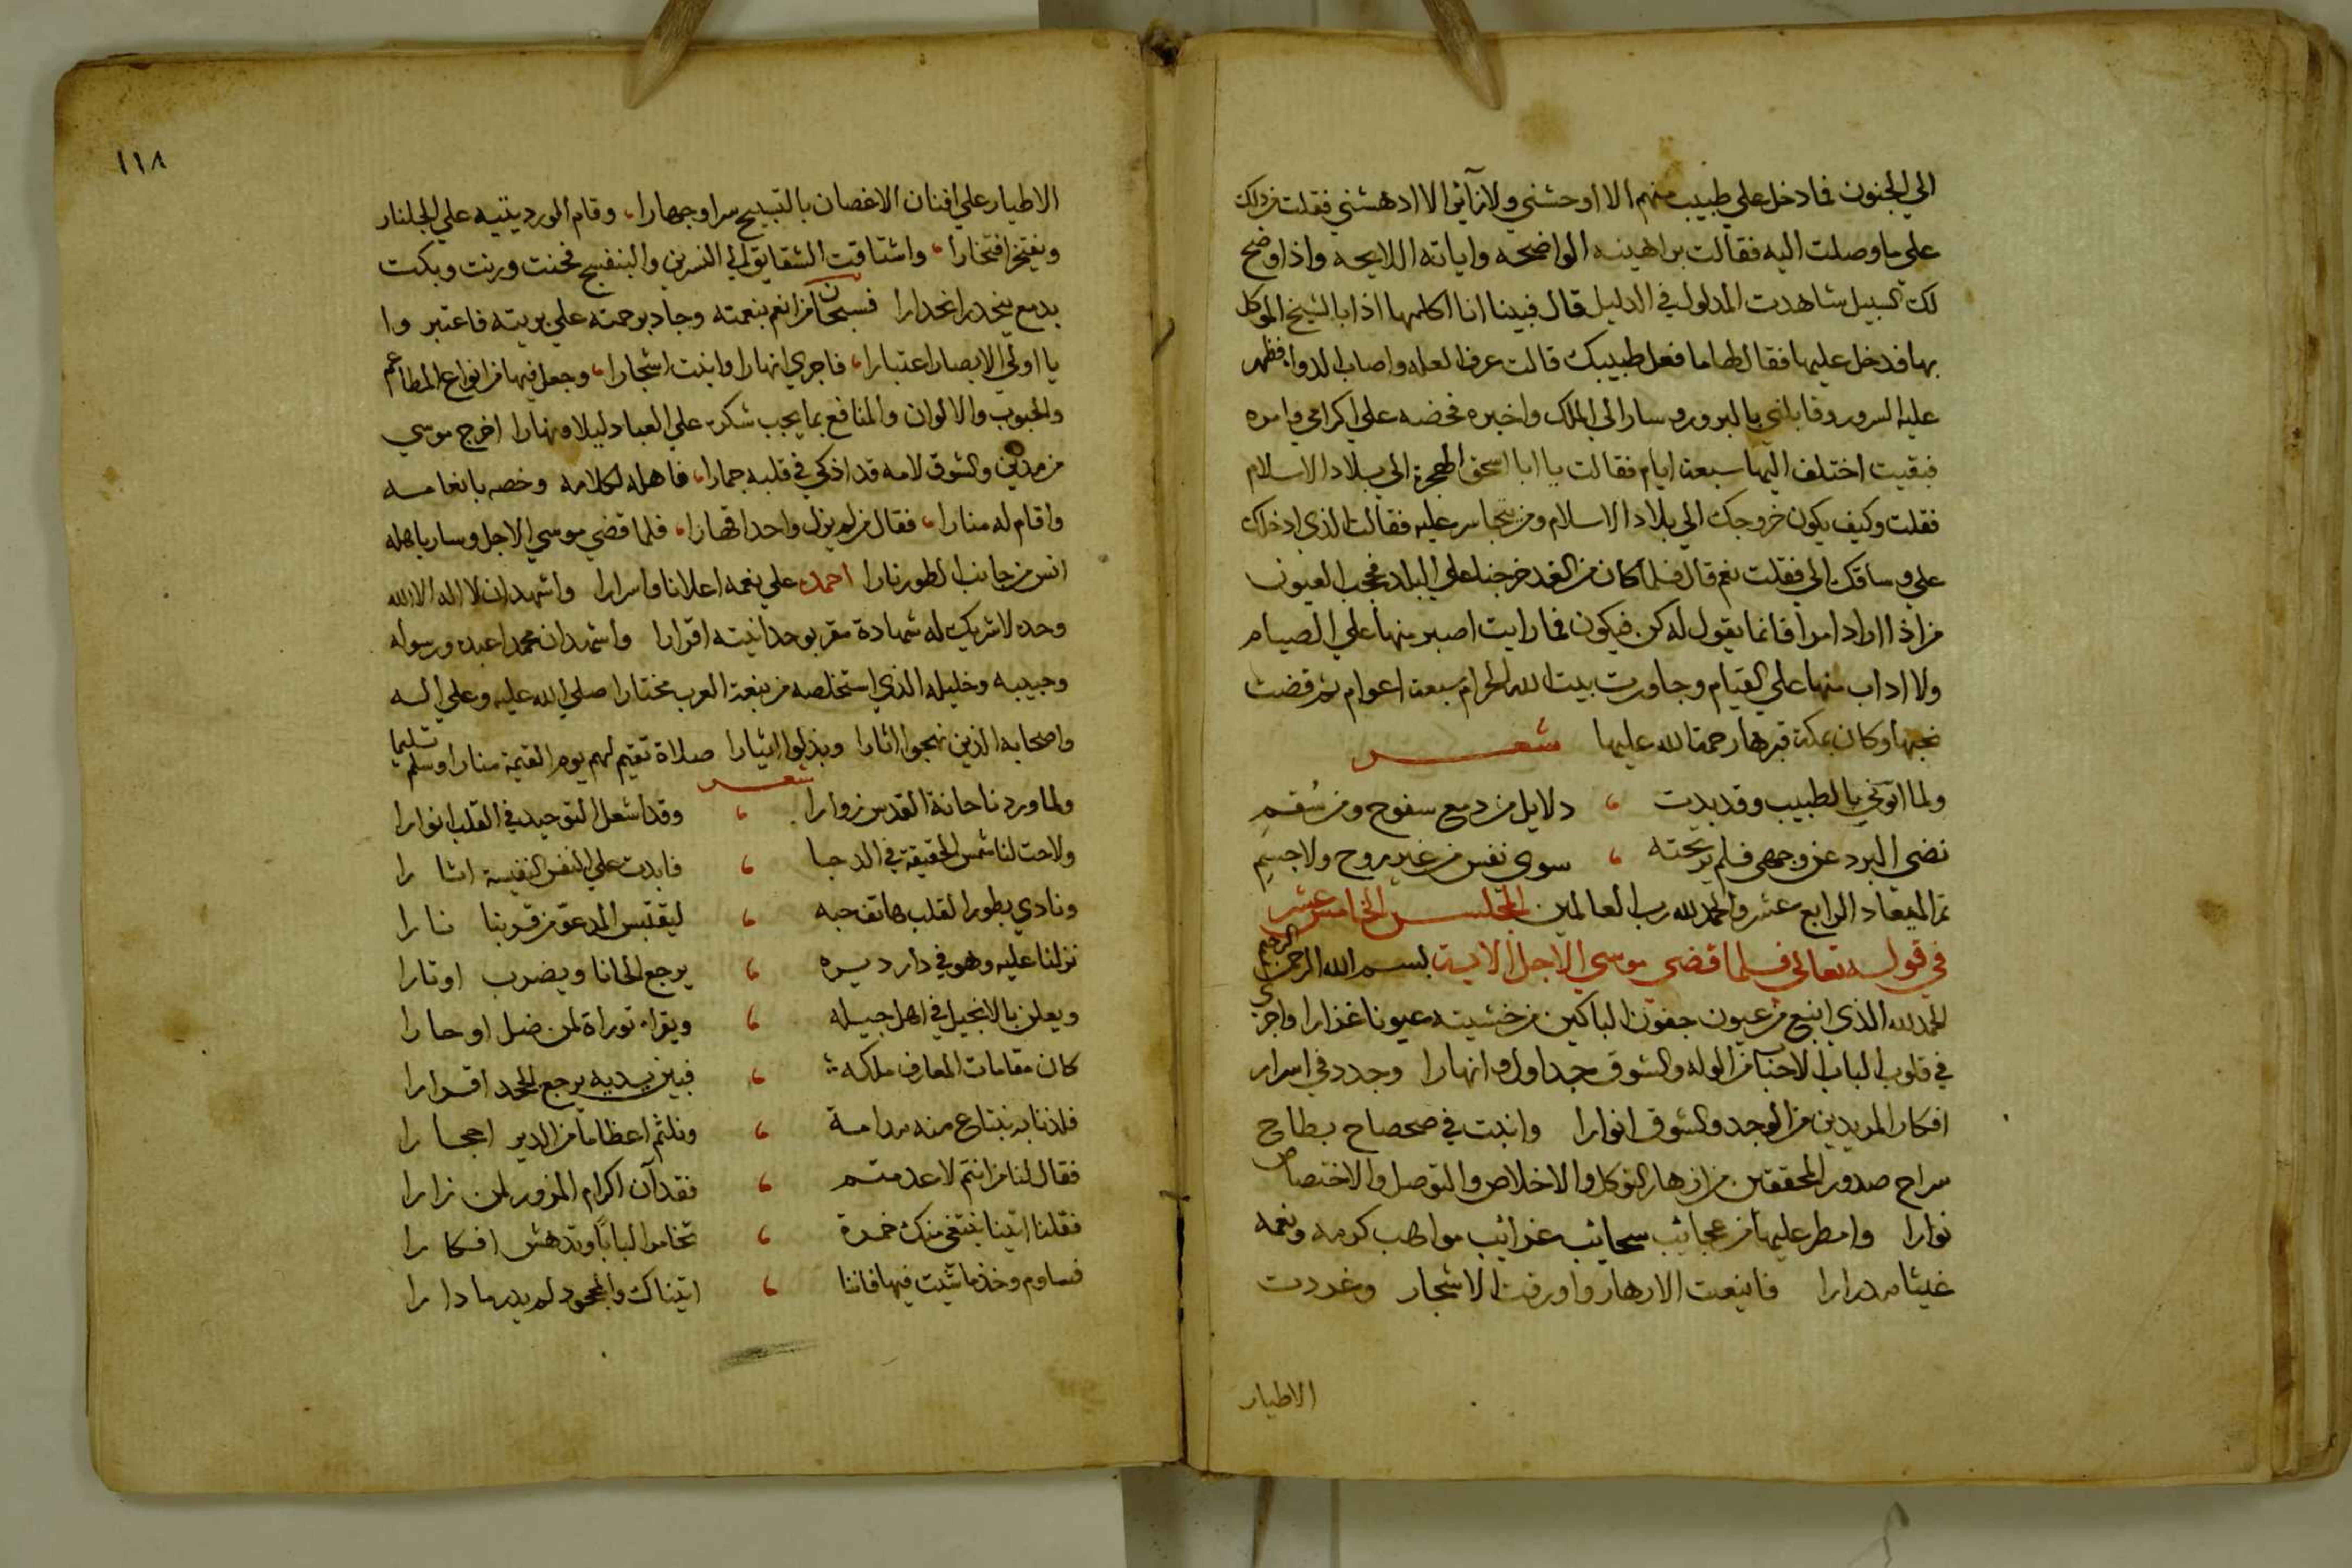 الي الجنون فما دخل علي طبيب منهم الا اوحشني ولا رآني الا ادهشني فقلت من دلك
علي ما وصلت اليه فقالت براهينه الواضحه واياته اللايحه واذا وضح
لك السبيل شاهدت المدلول في الدليل قال فبينا انا اكلمها اذا بالشيخ الموكل
بها فدخل عليها فقال لها ما فعل طبيبك قالت عرف العله واصاب الدواء فظهر
عليه السرور وقابلني بالبر وسار الي الملك واخبره فحضه علي اكرامي وامره
فبقيت اختلف اليها سبعة ايام فقالت يا ابا اسحق الهجرة الي بلاد الاسلام
فقلت وكيف يكون خروجك الي بلاد الاسلام ومن يتجاسر عليه فقالت الذي ادخلك
علي وساقك الي فقلت نعم قال فلما كان من الغد خرجنا علي البلد فحجب العيون
من اذا اراد امرا فانما يقول له كن فيكون فما رايت اصبر منها علي الصيام
ولا اداب منها علي القيام وجاورت بيت الله الحرام سبعة اعوام ثم قضت
نحبها وكان بمكة قبرها رحمة الله عليها شعر
ولما اتوني بالطبيب وقد بدت ، دلايل من دمع سفوح ومن سُقمِ
نضي البرد عن وجهي فلم ير تحته ، سوي نفس من غير روح ولا جسمِ
تم الميعاد الرابع عشر والحمد لله رب العالمين المجلس الخامس عشر
في قوله تعالى فلما قضى موسي الاجل الاية بسم الله الرحمن الرحيم
الحمد لله الذي انبع من عيون جفون الباكين من خشيته عيونا غزارا واجري
في قلوب الباب الاحباب من الوله والشوق جداول وانهارا وجدد في اسرار
افكار المريدين من الوجد والشوق انوارا وانبت في صحصاح بطاح
سراح صدور المحققين من ازهار التوكل والاخلاص والتوصل والاختصاص
نوارا وامطر عليها من عجائب سحائب غرائب مواهب كرمه ونعمه
غيثا مدرارا فاينعت الازهار واورقت الاشجار وغردت
الاطيار
١١٨
الاطيار علي افنان الاغصان بالتسبيح سرا وجهارا، وقام الورد يتيه علي الجلنار
ويفتخر افتخارا، واشتاقت الشقايق الي النسرين والبنفسج فحنت ورنت وبكت
بدمع ينحدر انحدارا فسبحان من انعم بنعمته وجاد برحمته علي بريته فاعتبروا
يا اولي الابصار اعتبارا، فاجري انهارا وانبت اشجارا، وجعل فيها من انواع المطاعم
والحبوب والالوان والمنافع بما يجب شكره علي العباد ليلا ونهارا اخرج موسي
من مدين والشوق لامه قد اذكي في قلبه جمارا، فاهله لكلامه وخصه بانعامه
واقام له منارا، فقال من لم يزل واحدا قهارا، فلما قضي موسي الاجل وسار باهله
انس من جانب الطور نارا احمده علي نعمه اعلانا واسرارا واشهد ان لا اله الا الله
وحده لا شريك له شهادة مقر بوحدانيته اقرارا واشهد ان محمدا عبده ورسوله
وحبيبه وخليله الذي استخلصه من نبعة العرب مختارا صلي الله عليه وعلي اله
واصحابه الذين نهجوا اثارا وبذلوا ايثارا صلاة تقيم لهم يوم القيمة منارا وسلم تسليما
شعر
ولما وردنا حانة القدس زوارا ، وقد اشعل التوحيد في القلب انوارا
ولاحت لنا شمس الحقيقة في الدجا ، فابدت علي النفس النفيسة اثارا
ونادي بطور القلب هاتف حبه ، ليقتبس المدعو من قربنا نارا
نزلنا عليه وهو في دار ديره ، يرجع الحانا ويضرب اوتارا
ويعلن بالانجيل في اهل جيله ، ويقراء توراة لمن ضل او حارا
كان مقامات المعارف ملكه ، فبين يديه يرجع الجحد اقرارا
فلذنا به نبتاع منه مدامة ، ونلثم اعظاما من الدير احجارا
فقال لنا من انتم لا عدمتم ، فقد آن اكرام المزور لمن زارا
فقلنا اتينا نبتغي منك خمرة ، تخامر البابًا وتدهش افكارا
فساوم وخذ ما شئت فيها فاننا ، اتيناك والمحجوب لم يدر ما دارا